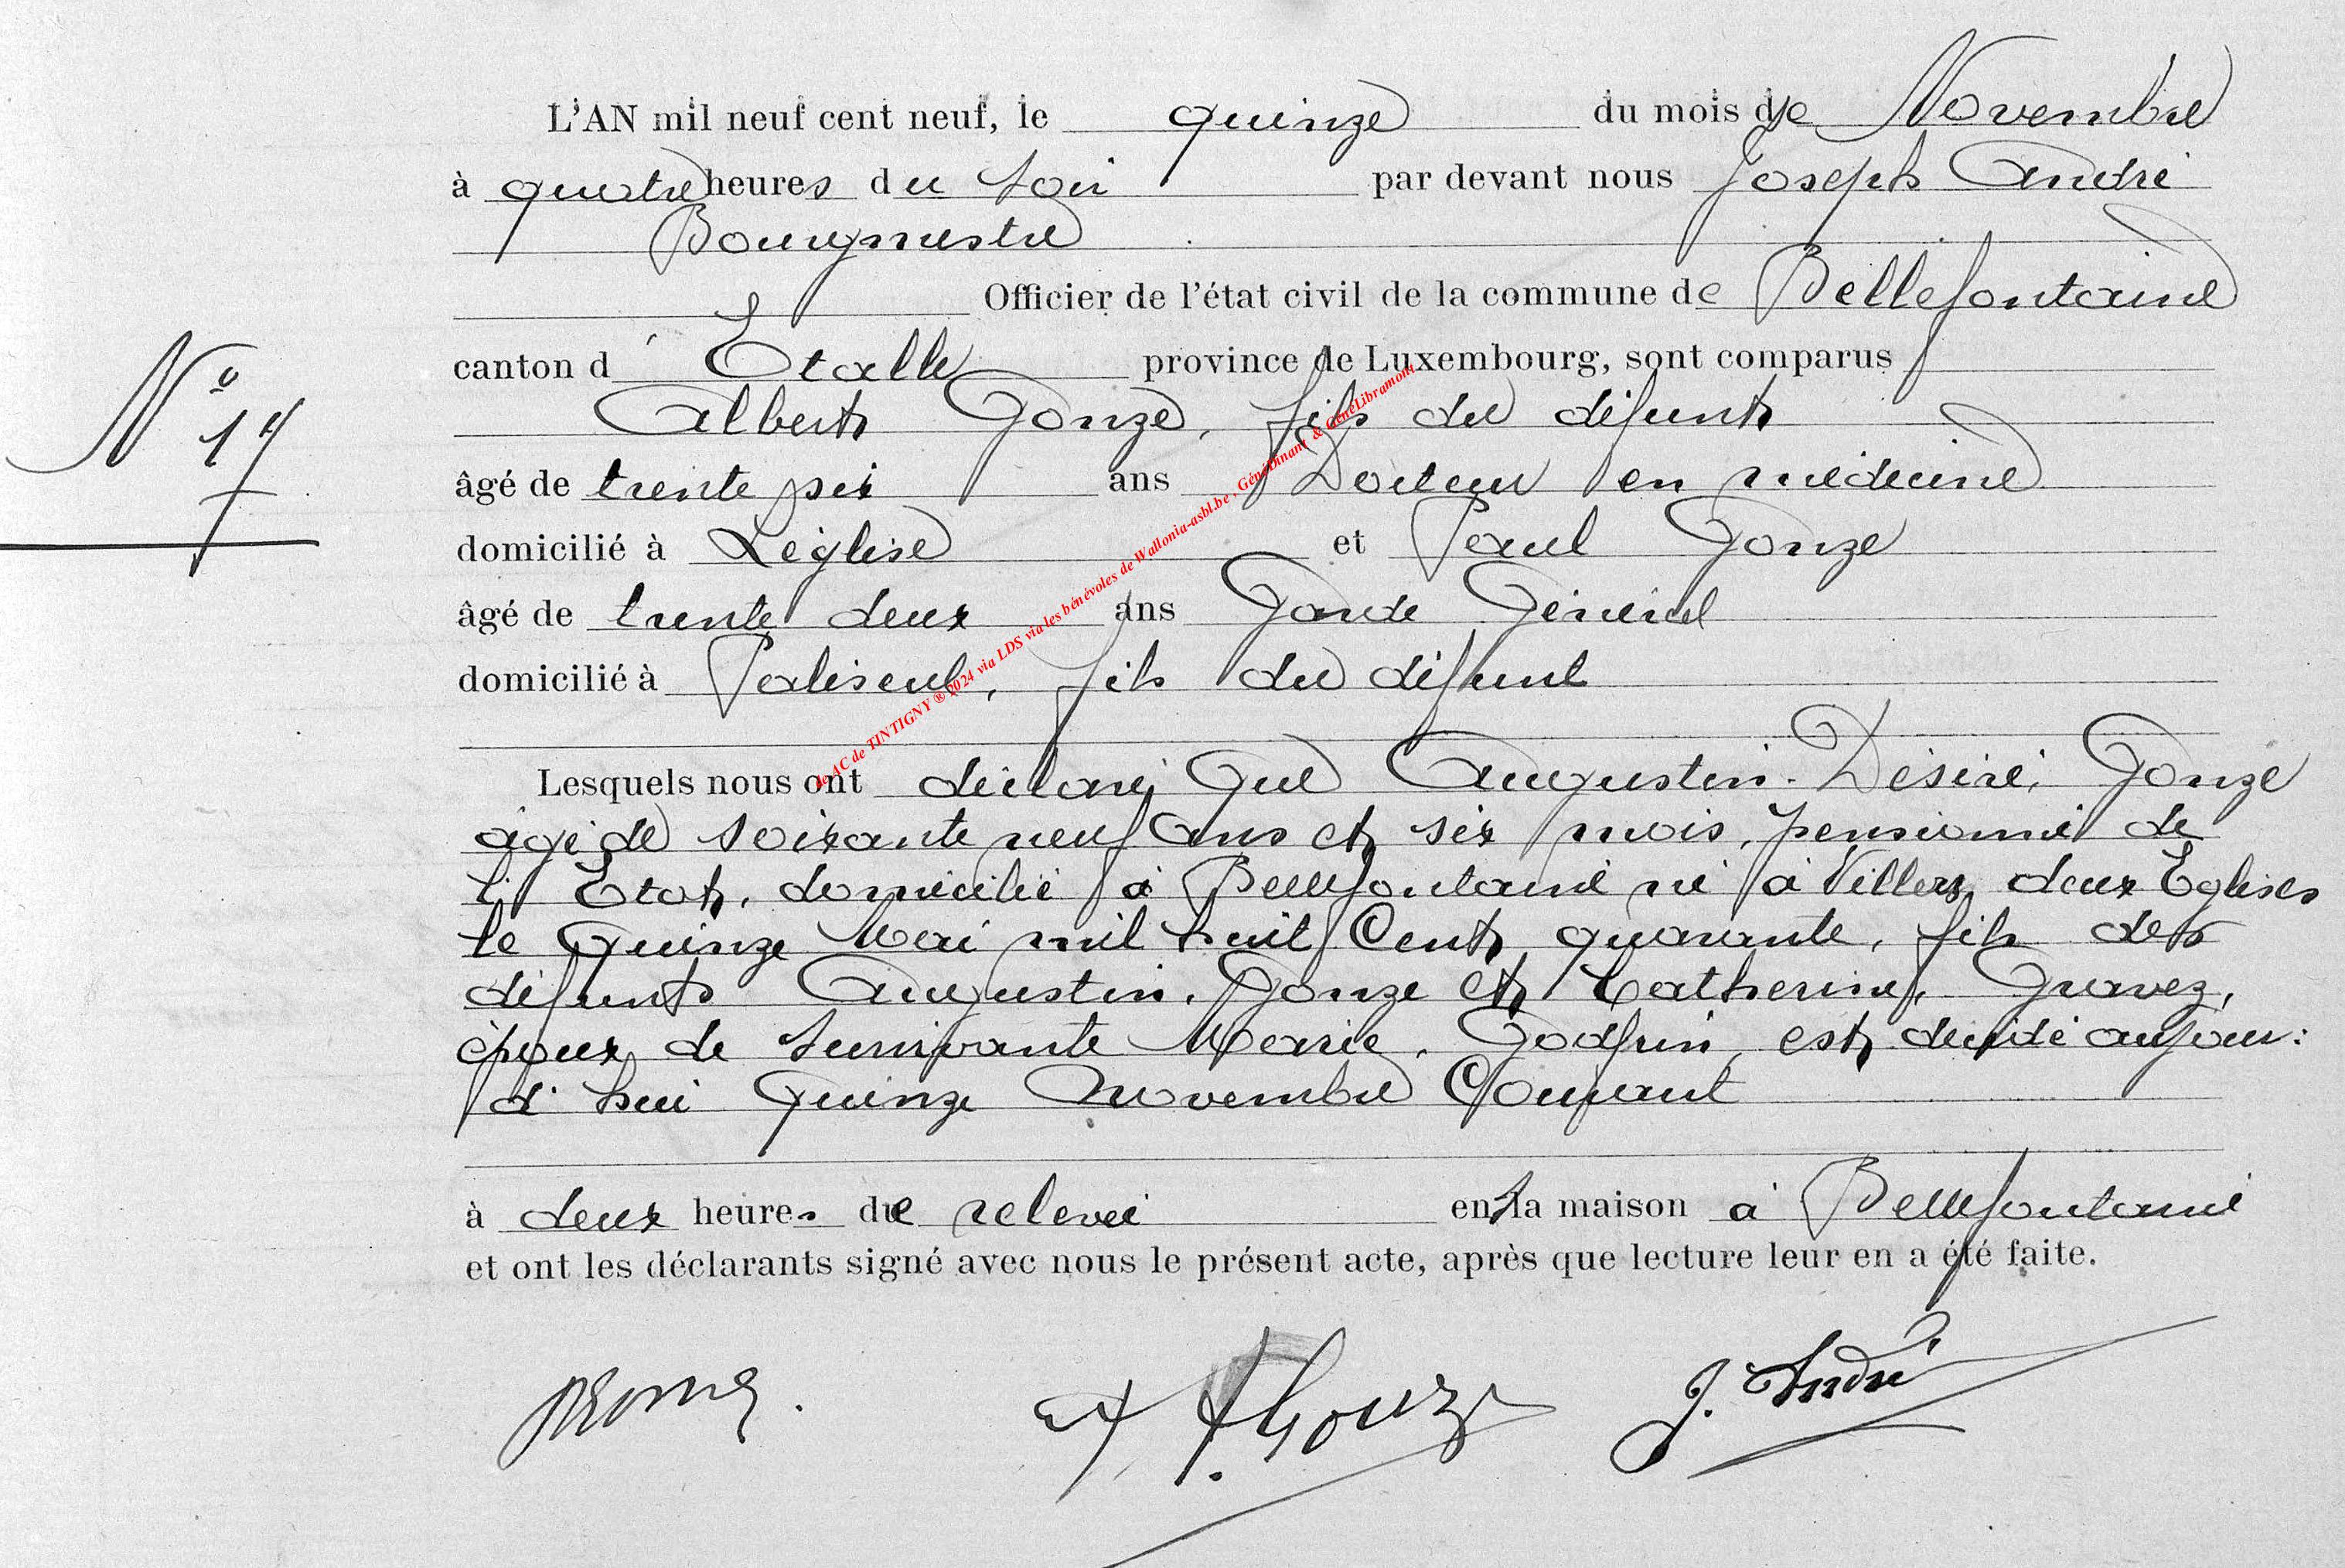 L'AN mil neuf cent neuf, le quinze du mois de Novembre
à quatre heures du soir par devant nous Joseph André
Bourgmestre
Officier de l'état civil de la commune de Bellefontaine
canton d'Etalle province de Luxembourg, sont comparus
N° 14
Albert Gonze, fils du défunt
âgé de trente six ans Docteur en médecine
domicilié à Léglise et Paul Gonze
âgé de trente deux ans Garde Général
domicilié à Paliseul, fils du défunt
de AC de TINTIGNY ® 2024 via LDS via les bénévoles de Wallonia-asbl.be, GénéDinant & GénéLibramont
Lesquels nous ont déclaré que Augustin-Désiré, Gonze
âgé de soixante neuf ans et six mois, pensionné de
l'Etat, domicilié à Bellefontaine né à Villers deux Eglises
le quinze Mai mil huit Cent quarante, fils des
défunts Augustin, Gonze et Catherine, Gravez,
époux de survivante Marie, Godfrin, est décédé aujour:
d'hui quinze Novembre Courant
à deux heures de relevée en sa maison à Bellefontaine
et ont les déclarants signé avec nous le présent acte, après que lecture leur en a été faite.
A Gonze J. André